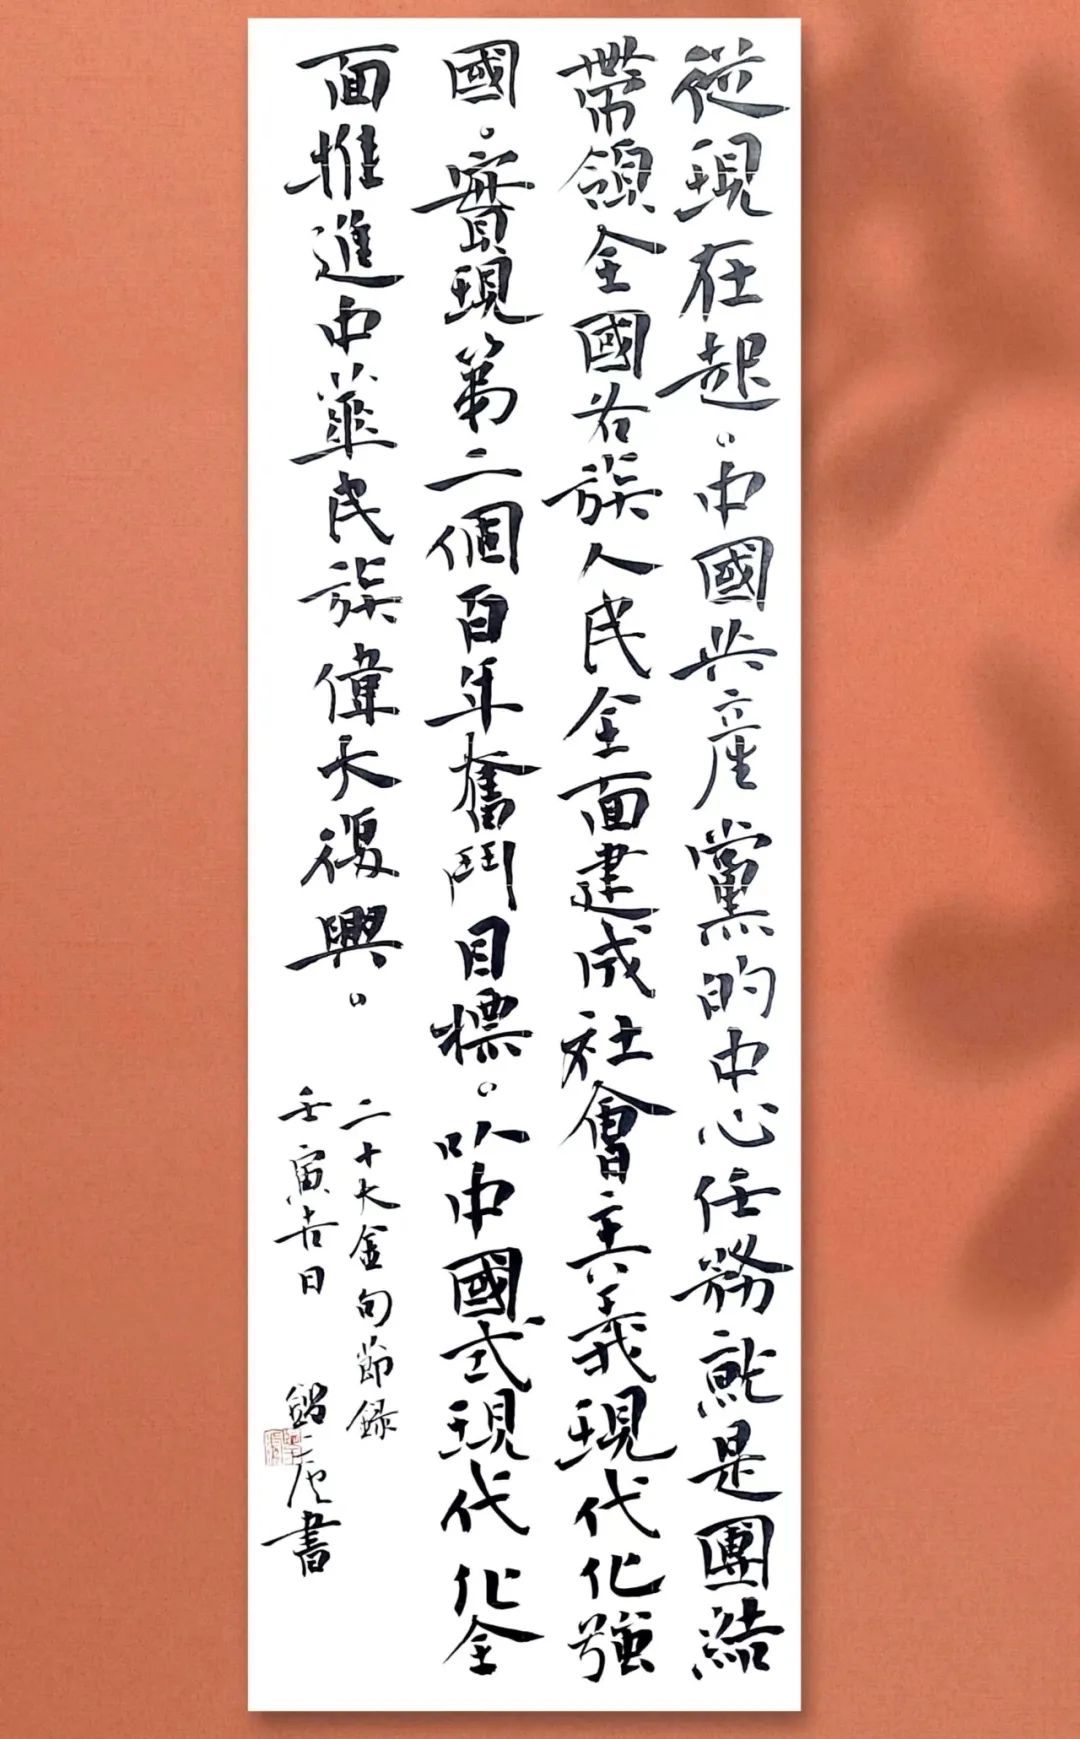 從現在起。中國共産黨的中心任務就是團結
帶領全國各族人民全面建成社會主義現代化強
國。實現第二個百年奮鬥目標。以中國式現代化全
面推進中華民族偉大復興。
二十大金句節録
壬寅吉日
書